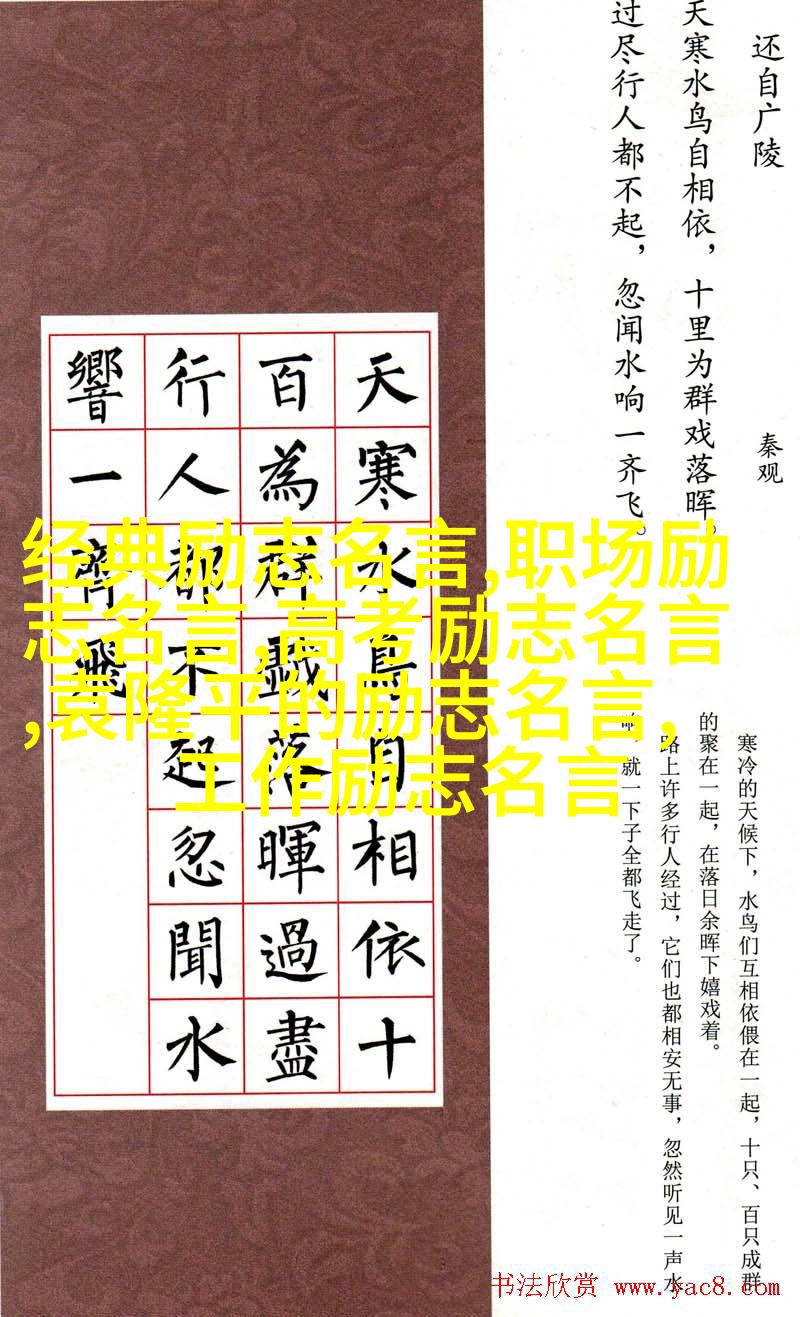 还自广陵
秦观
天寒水鸟自相依，十里为群戏落晖。
过尽行人都不起，忽闻水响一齐飞。
天寒水鳥自相依十
百為群戲落暉過盡
行人都不起忽聞水
響一齊飛
经典励志名言,职场励
志名言,高考励志名言
,袁隆平的励志名言,
工作励志名言
寒冷的天候下，水鸟们互相依偎在一起，十只、百只成群
的聚在一起，在落日余晖下嬉戏着。
路上许多行人经过，它们也都相安无事，忽然听见一声水
响，就一下子全都飞走了。
书法欣赏 www.yac8.com